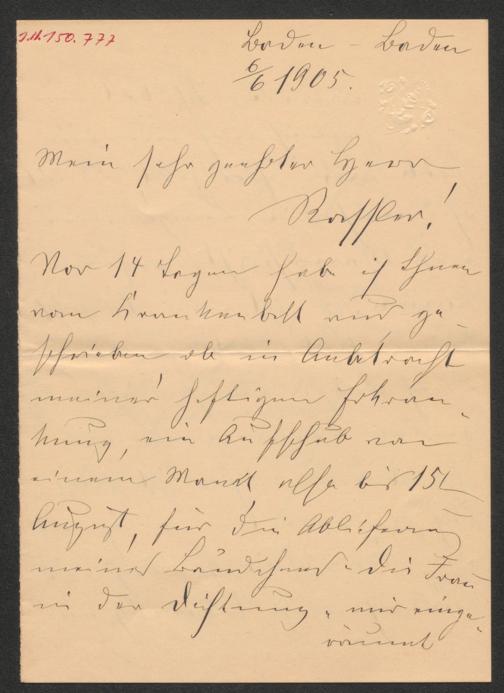 J.N. 150.777
Baden - Baden
6/6 1905.
Mein sehr geehrter Herr
Vor 14 Tagen habe ich Ihnen
vom Krankenbett aus ge-
schrieben ob in Anbetracht
meiner heftigen Erkran-
kung, ein Aufschub von
einem Monat also bis 15t
August, für die Ablieferung
meines Bändchens "Die Frau
in der Dichtung" mir einge-
räumt